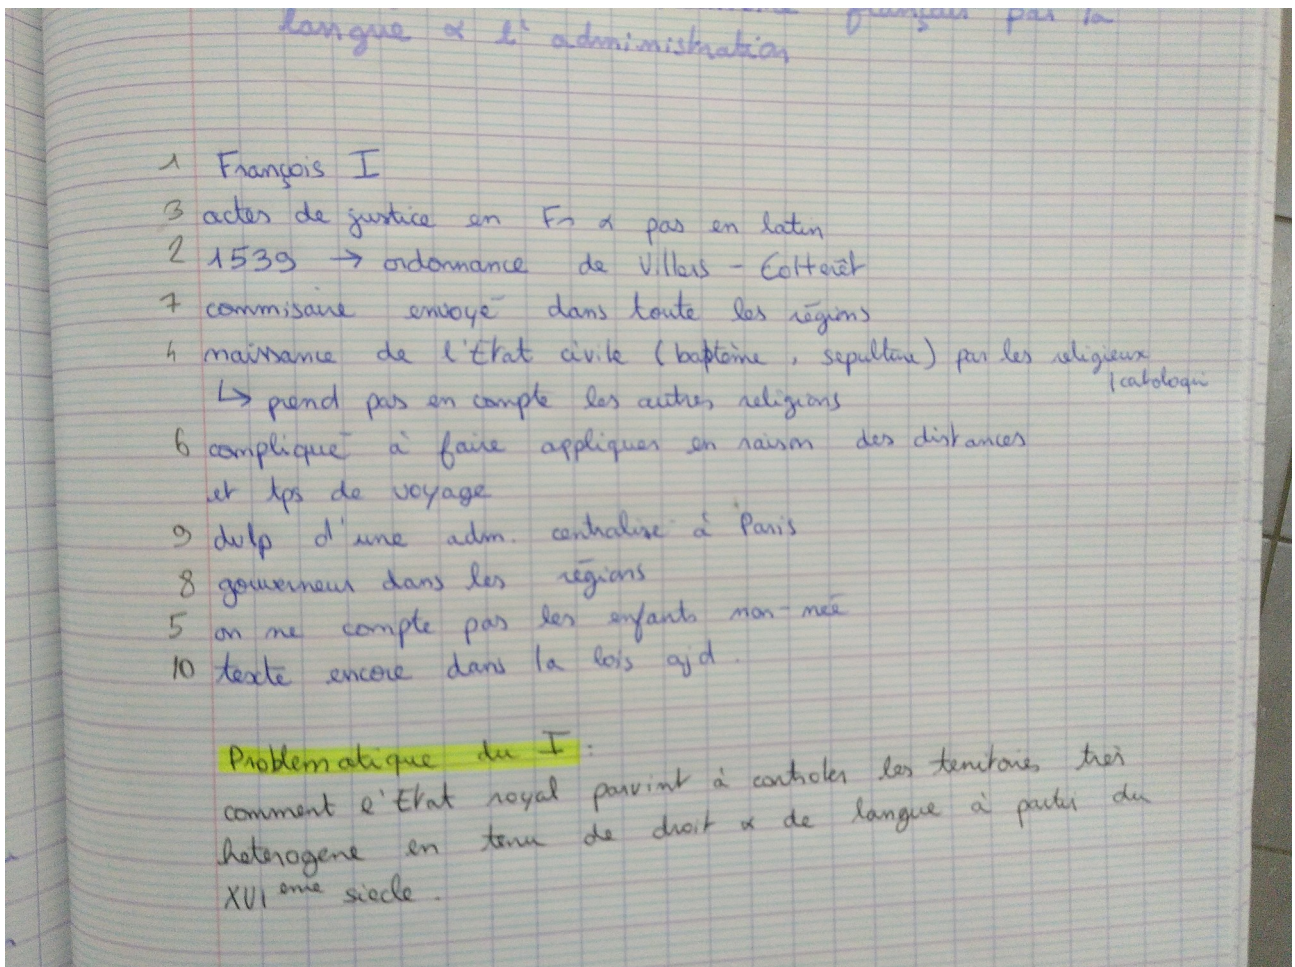 français par la
langue & l'administration
1 François I
3 actes de justice en Fr & pas en latin
2 1539 → ordonnance de Villers - Cotterêt
7 commisaire envoyé dans toute les régions
4 naissance de l'Etat civile (baptême, sepulture) par les religieux
(catologi
↳ prend pas en compte les autres religions
6 compliqué à faire appliquer en raison des distances
et tps de voyage
9 dvlp d'une adm. centralise à Paris
8 gouverneur dans les régions
5 on ne compte pas les enfants non-née
10 texte encore dans la lois ajd.
Problematique du I :
comment l'Etat royal parvint à controler les territoires très
heterogene en tenu de droit & de langue à partir du
XVI eme siecle.